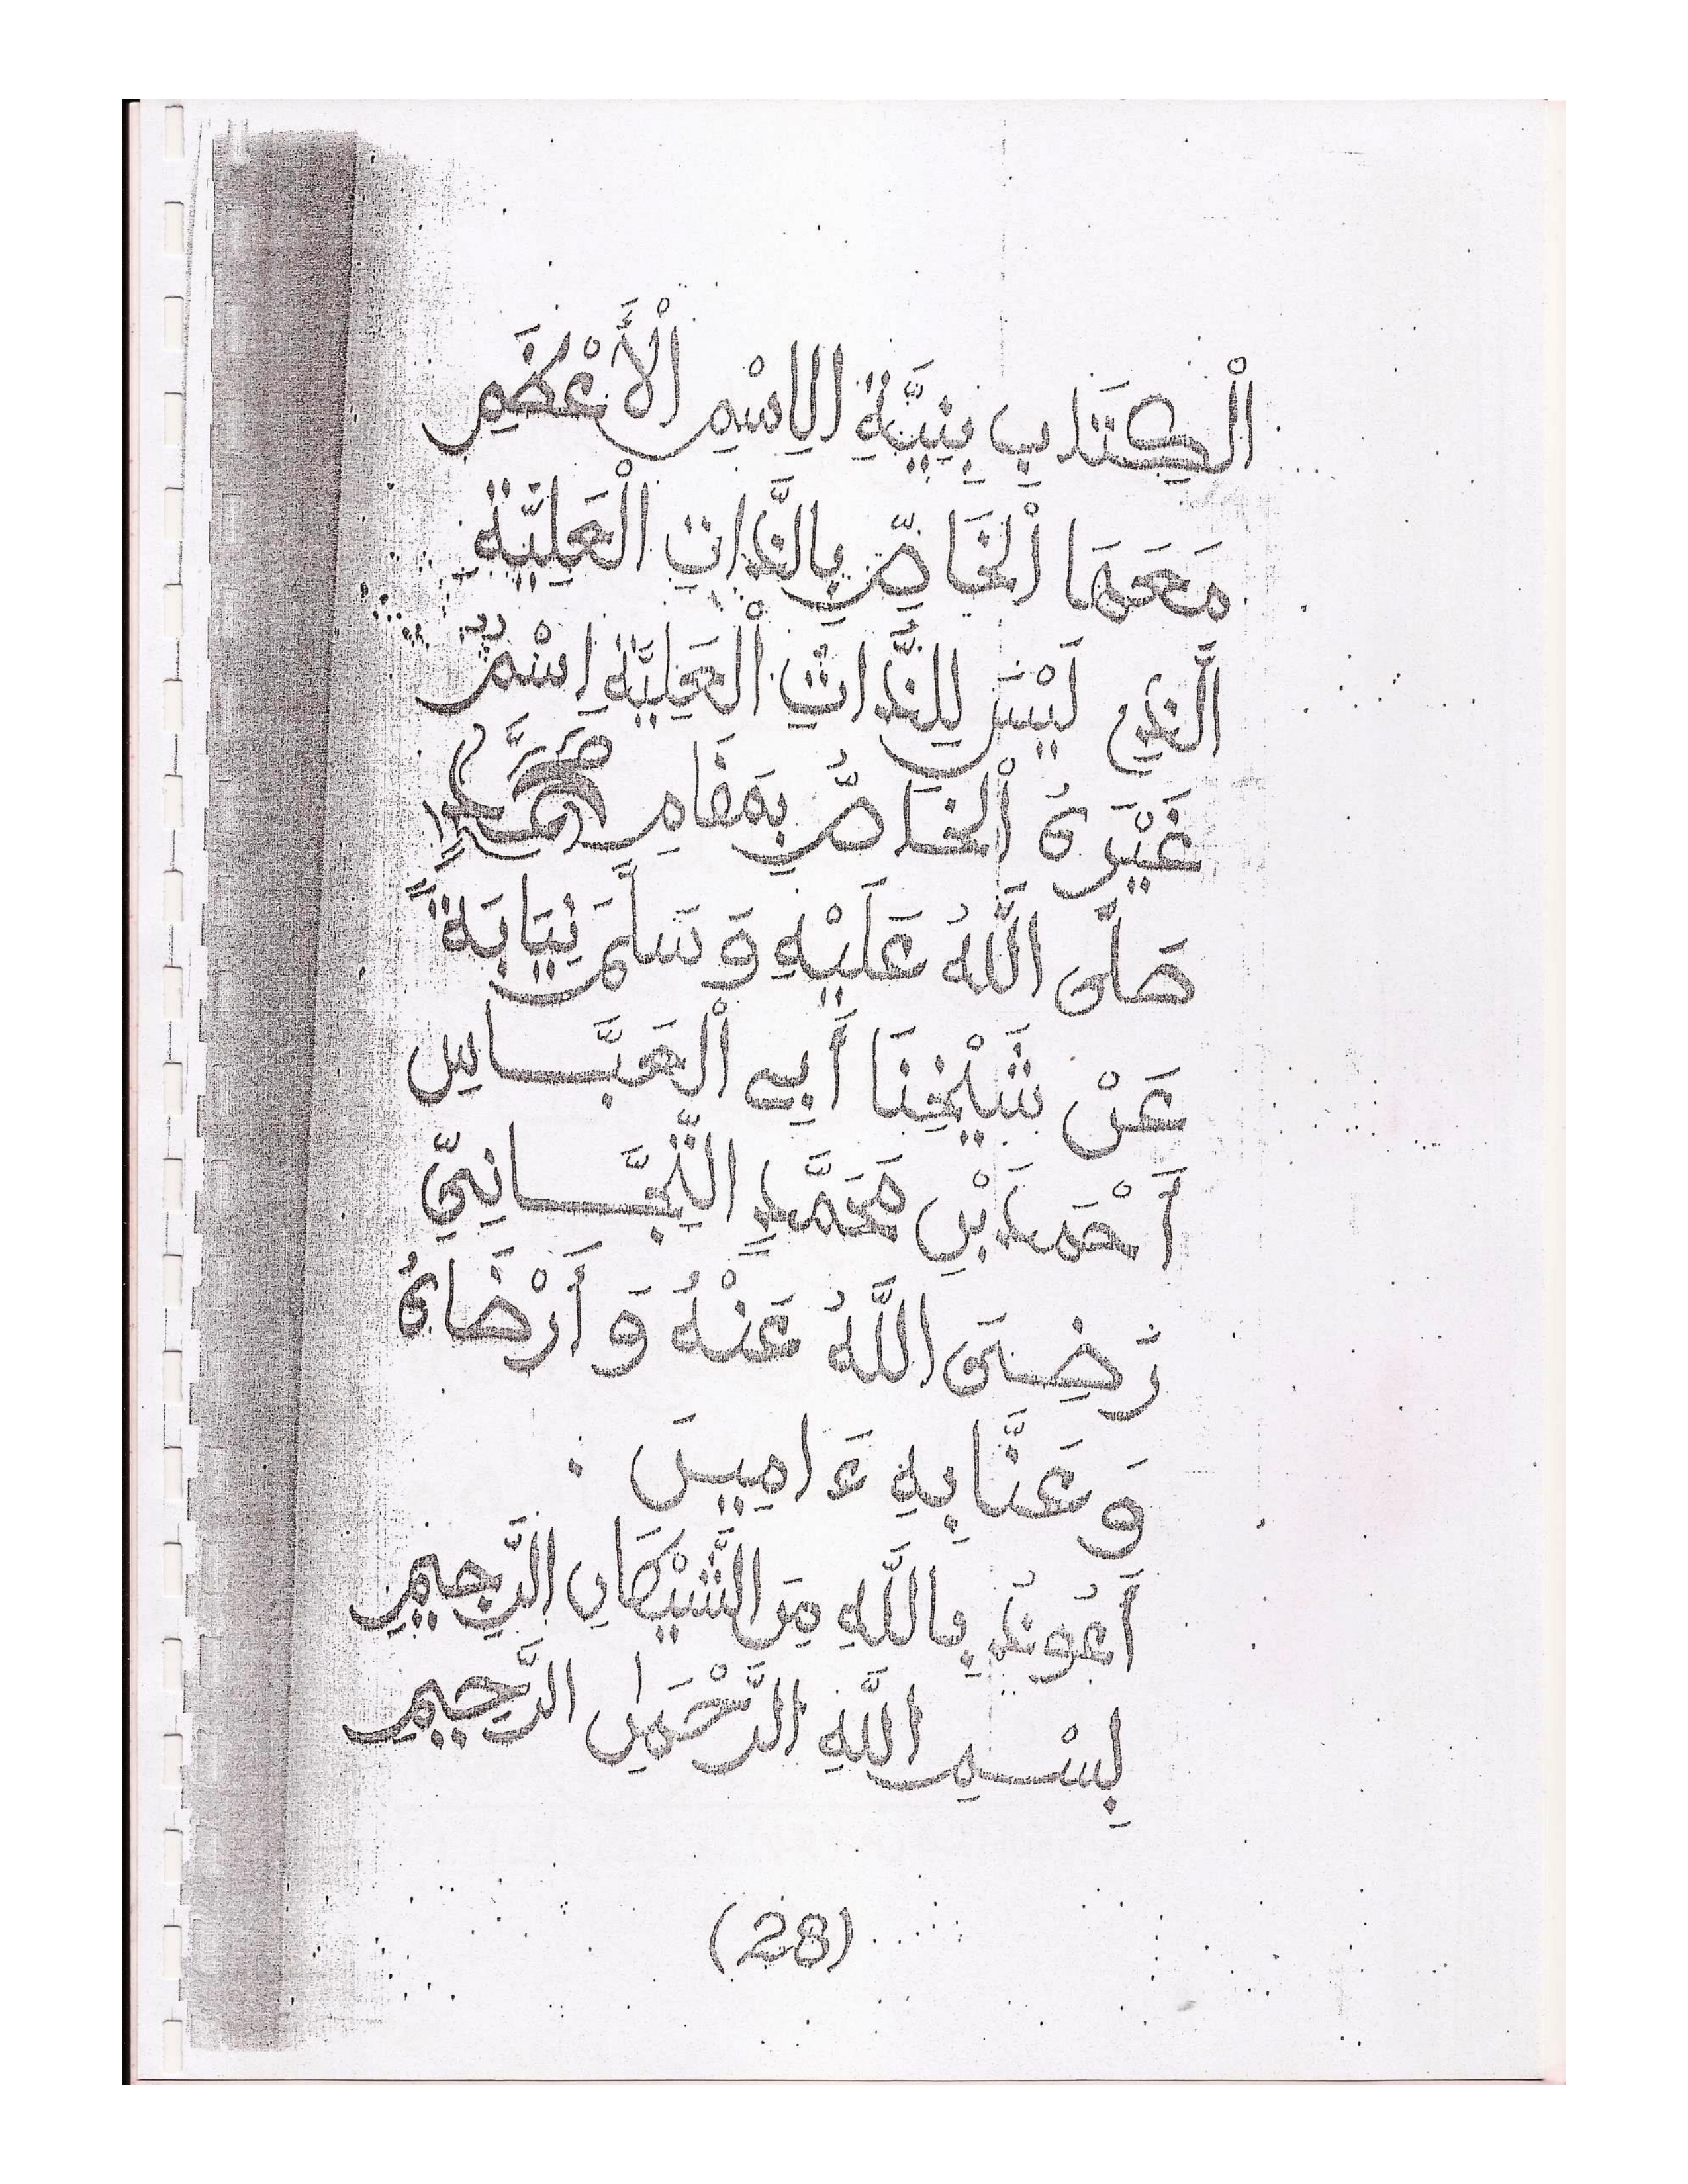 الْكِتَابِ بِنِيَّةِ الِاسْمِ الْأَعْظَمِ
مَعَهَا الْخَاصِّ بِالذَّاتِ الْعَلِيَّةِ
الَّذِي لَيْسَ لِلذَّاتِ الْعَلِيَّةِ اِسْمٌ
غَيْرَهُ الْخَاصُّ بِمَقَامِ مُحَمَّدٍ
صَلَّى اللَّهُ عَلَيْهِ وَسَلَّمَ نِيَابَةً
عَنْ شَيْخِنَا أَبِي الْعَبَّاسِ
أَحْمَدَ بْنِ مُحَمَّدٍ التِّجَّانِيِّ
رَضِيَ اللَّهُ عَنْهُ وَأَرْضَاهُ
وَعَنَّا بِهِ ءَامِينَ .
أَعُوذُ بِاللَّهِ مِنَ الشَّيْطَانِ الرَّجِيمِ
بِسْمِ اللَّهِ الرَّحْمَٰنِ الرَّحِيمِ
(28)